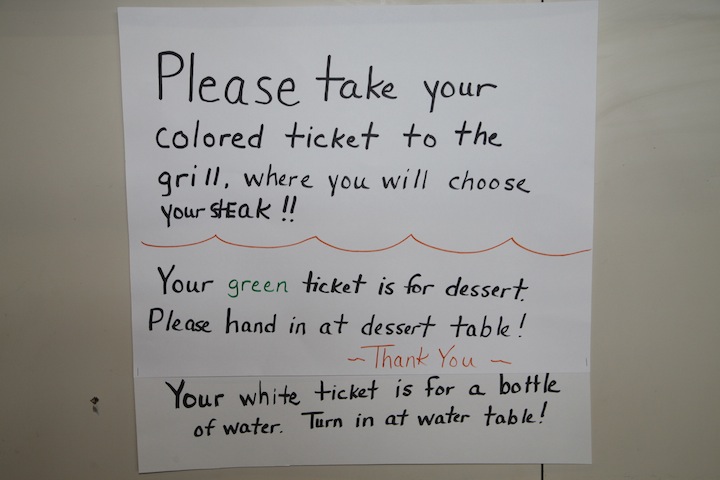 Please take your
colored ticket to the
grill, where you will choose
your STEAK !!
Your green ticket is for dessert.
Please hand in at dessert table!
~ Thank You ~
Your white ticket is for a bottle
of water. Turn in at water table!